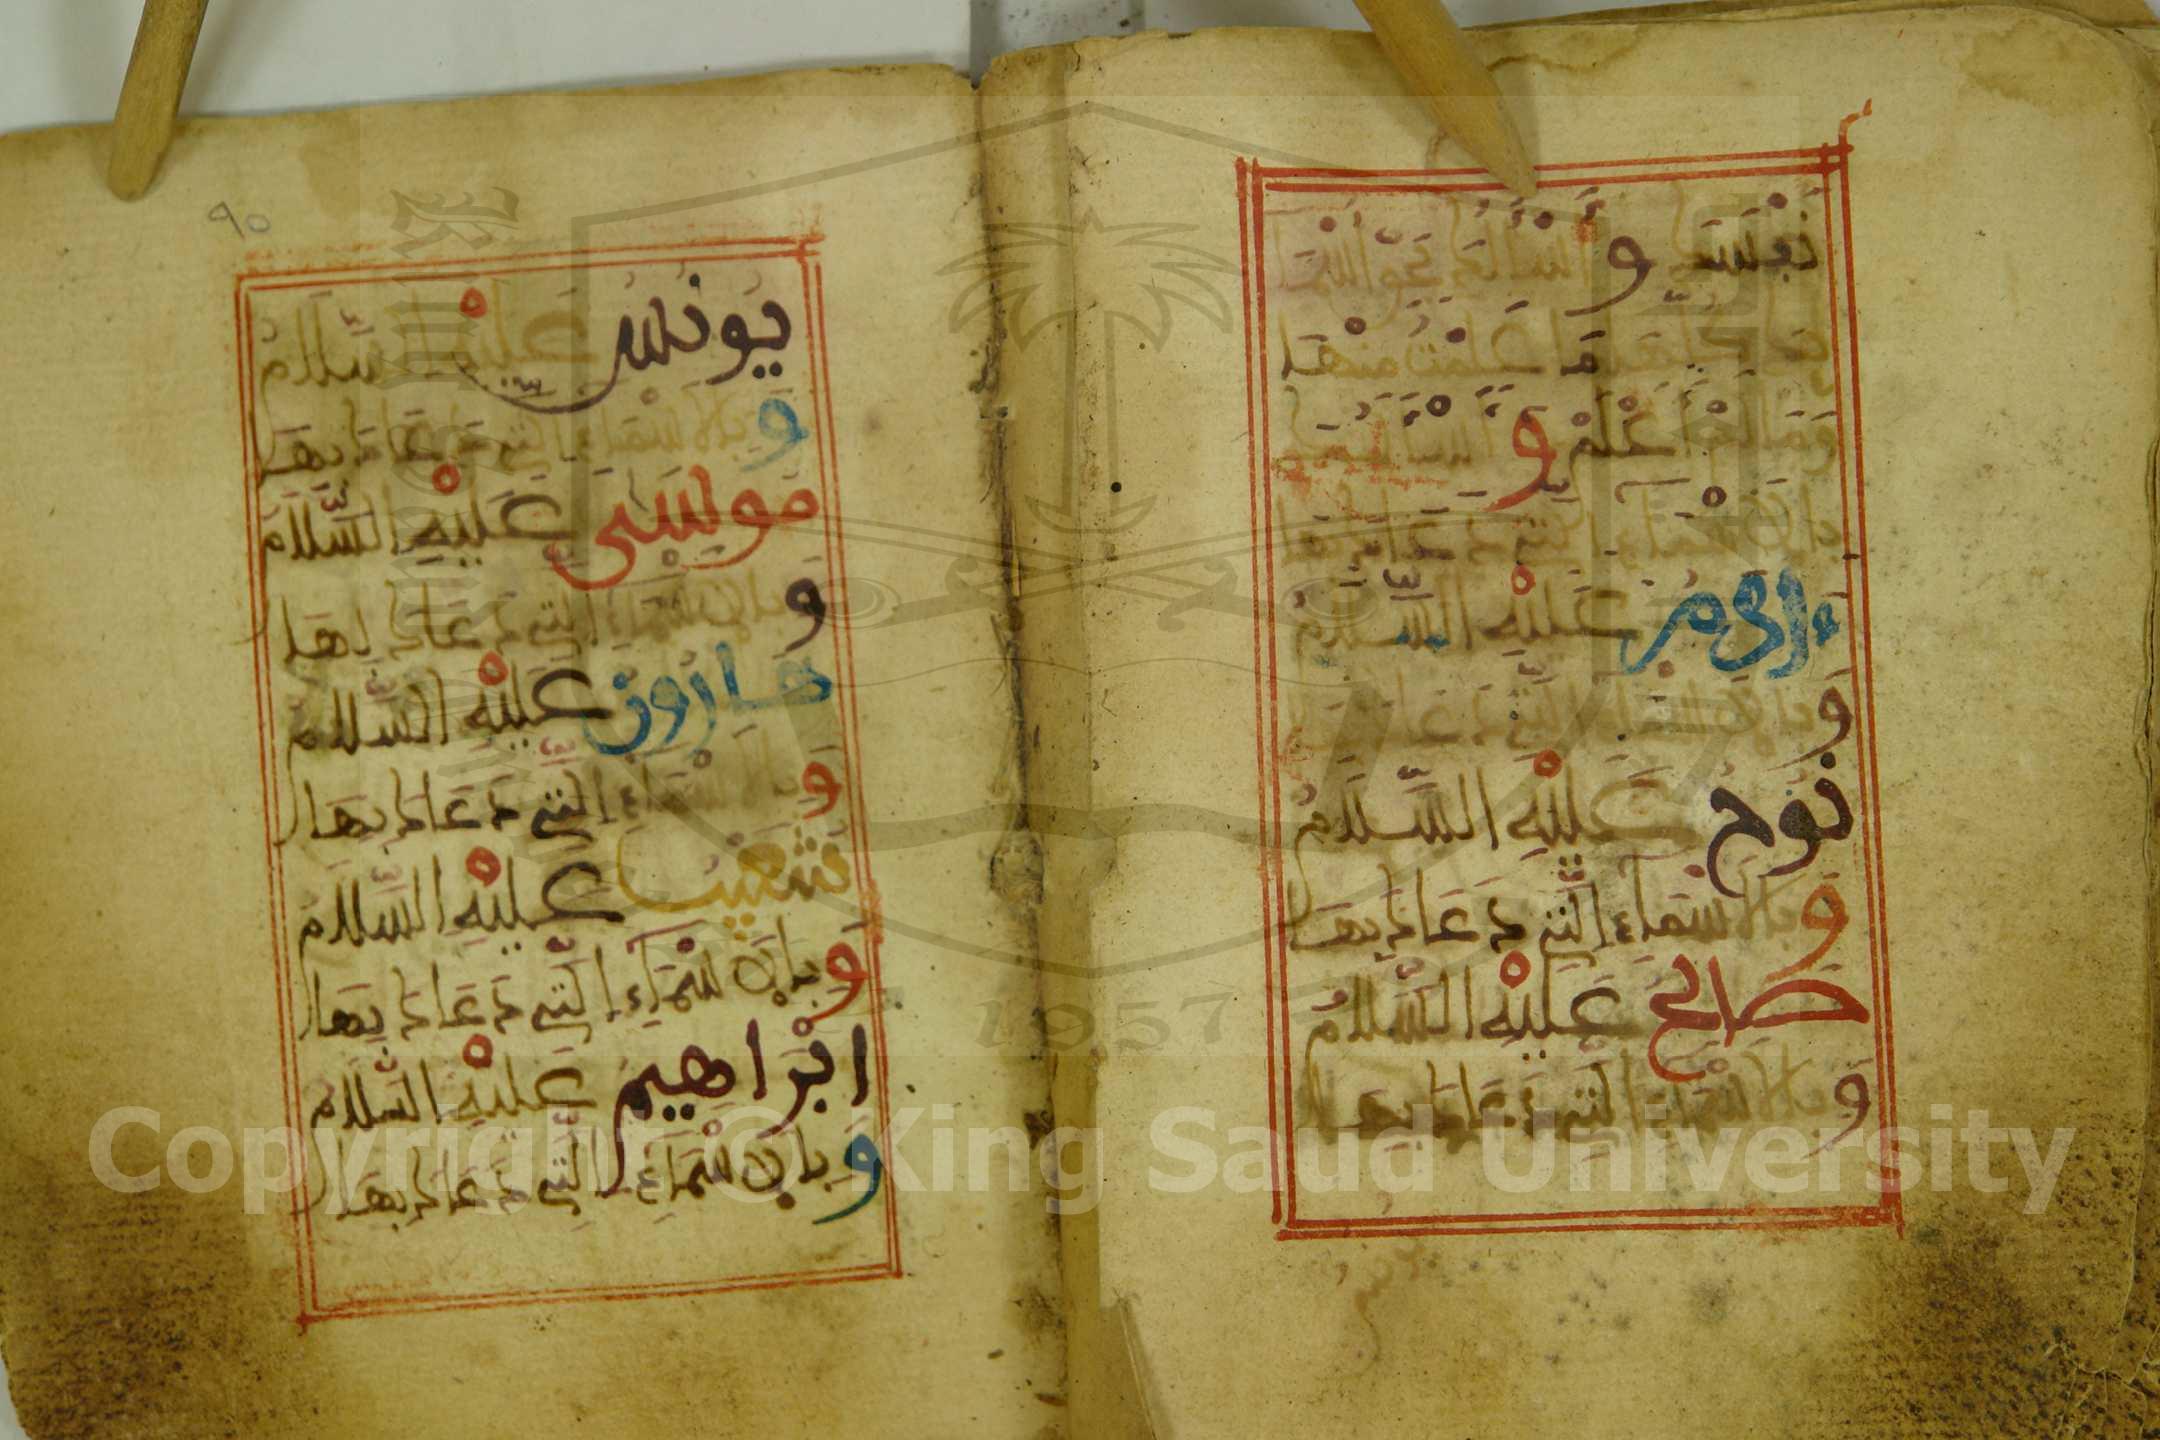 نَفْسَكَ وَأَسْأَلُكَ بِحَقِّ أَسْمَا
ئِكَ كُلِّهَا مَا عَلِمْتُ مِنْهَا
وَمَا لَمْ أَعْلَمْ وَأَسْأَلُكَ
بِالْأَسْمَاءِ الَّتِي دَعَاكَ بِهَا
ءَادَمُ عَلَيْهِ السَّلَامُ
وَبِالْأَسْمَاءِ الَّتِي دَعَاكَ بِهَا
نُوحُ عَلَيْهِ السَّلَامُ
وَبِالْأَسْمَاءِ الَّتِي دَعَاكَ بِهَا
صَالِحُ عَلَيْهِ السَّلَامُ
وَبِالْأَسْمَاءِ الَّتِي دَعَاكَ بِهَا
٩٥
يُونُسُ عَلَيْهِ السَّلَامُ
وَبِالْأَسْمَاءِ الَّتِي دَعَاكَ بِهَا
مُوسَى عَلَيْهِ السَّلَامُ
وَبِالْأَسْمَاءِ الَّتِي دَعَاكَ بِهَا
هَارُونُ عَلَيْهِ السَّلَامُ
وَبِالْأَسْمَاءِ الَّتِي دَعَاكَ بِهَا
شُعَيْبُ عَلَيْهِ السَّلَامُ
وَبِالْأَسْمَاءِ الَّتِي دَعَاكَ بِهَا
ابْرَاهِيمُ عَلَيْهِ السَّلَامُ
وَبِالْأَسْمَاءِ الَّتِي دَعَاكَ بِهَا
1957
Copyright © King Saud University